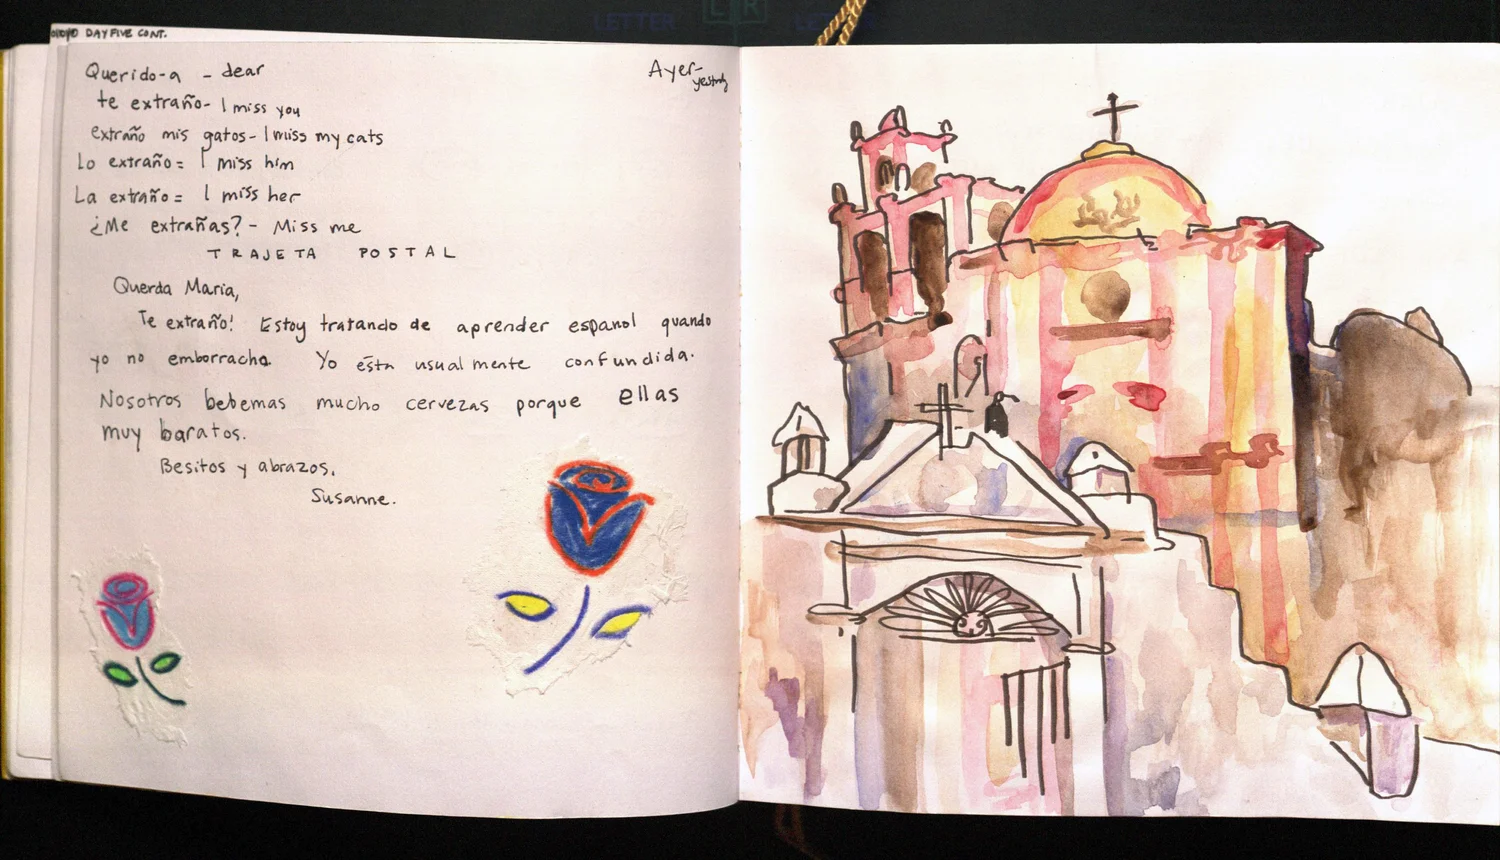 LETTER LR LETTER
DAY FIVE CONT.
Ayer- yesterday
Querido-a - dear
te extraño - I miss you
extraño mis gatos - I miss my cats
Lo extraño = I miss him
La extraño = I miss her
¿Me extrañas? - Miss me
TRAJETA POSTAL
Querda Maria,
Te extraño! Estoy tratando de aprender espanol quando
yo no emborracha. Yo ésta usualmente confundida.
Nosotros bebemas mucho cervezas porque ellas
muy baratos.
Besitos y abrazos,
Susanne.